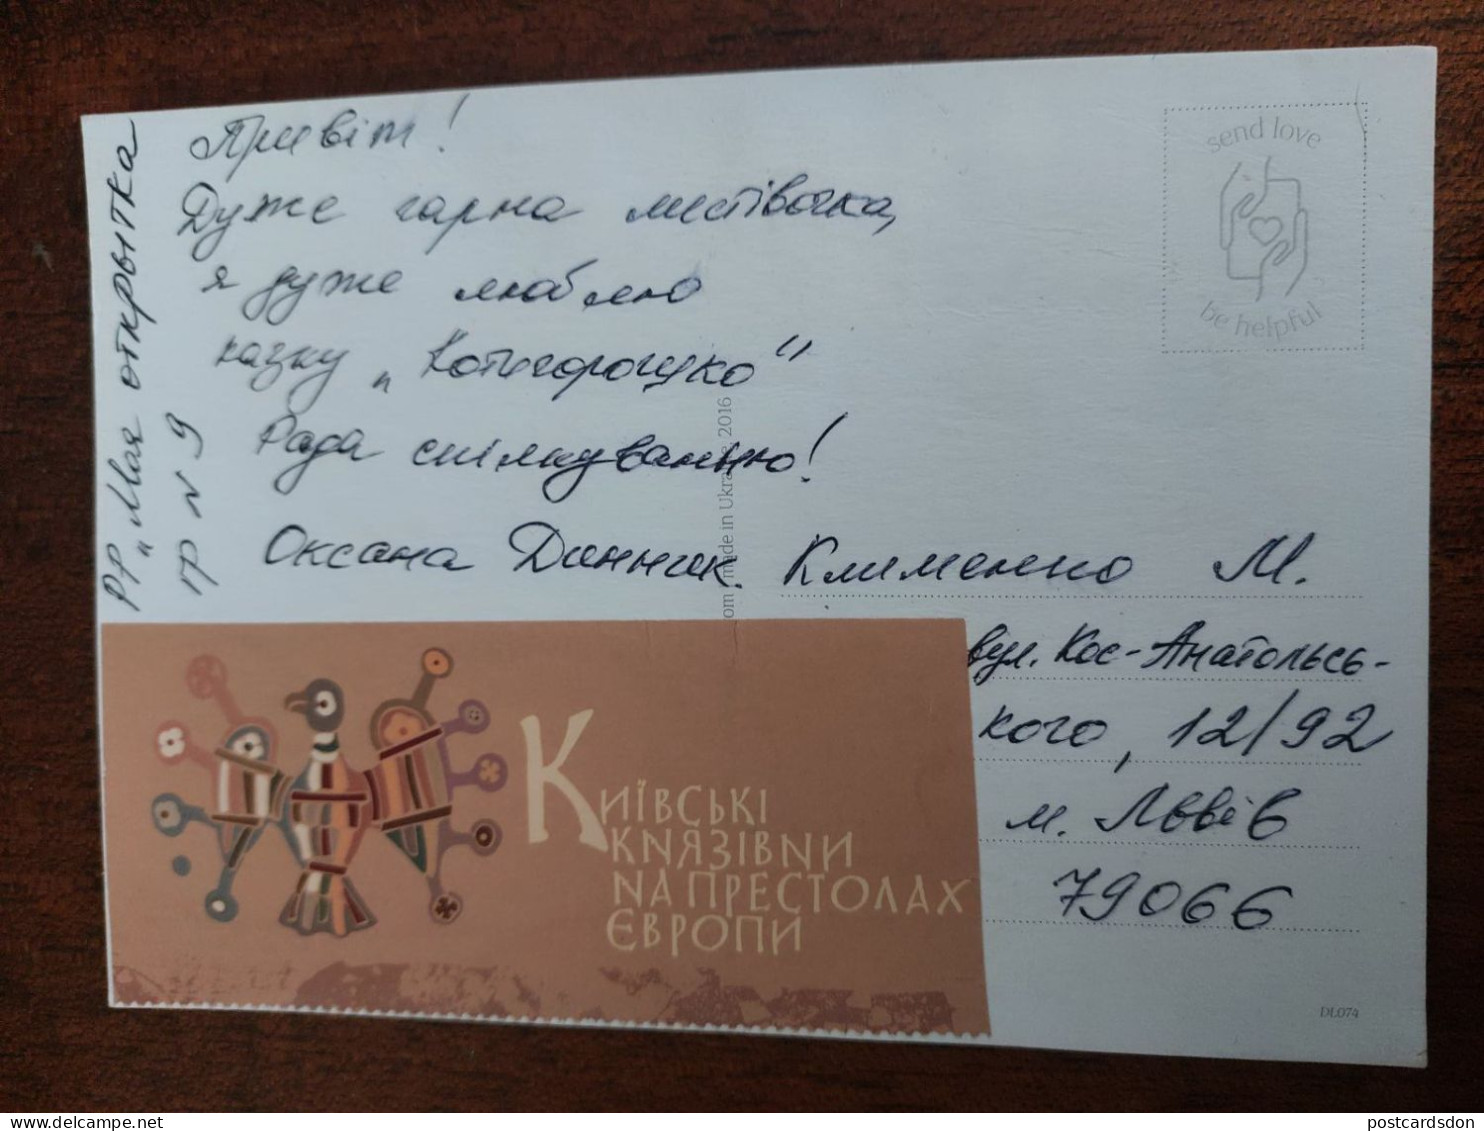 РР „Мая открытка
гр N 9
Привіт!
Дуже гарна листівочка,
я дуже люблю
казку „Котигорошко"
Рада спілкуванню!
Оксана Динник.
send love
be helpful
made in Ukraine 2016
Клименко М.
вул. Кос-Анатольсь-
кого, 12/92
м. Львів
79066
Київські
князівни
на престолах
Європи
DL074
www.delcampe.net
postcardsdon